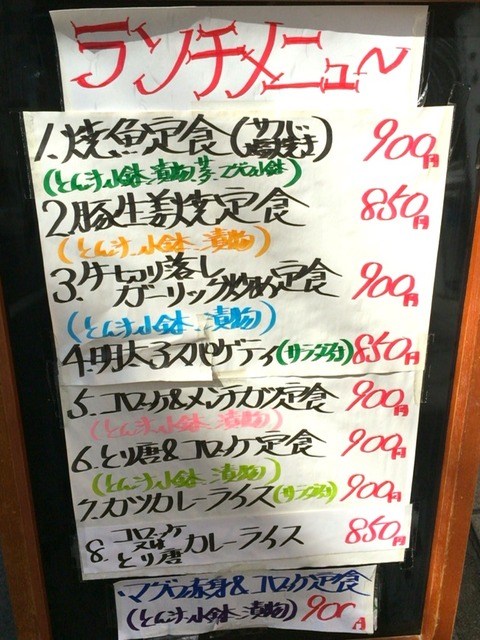 ランチメニュ〜
1.焼魚定食(サフじ 塩焼き) 900円
(とん汁.小鉢.漬物 マグロ小鉢)
2.豚生姜焼定食 850円
(とん汁.小鉢.漬物)
3.牛切り落し
ガーリック炒め定食 900円
(とん汁.小鉢.漬物)
4.明太子スパゲティ(サラダ付) 850円
5.コロッケ&メンチカツ定食 900円
(とん汁.小鉢.漬物)
6.とり唐&コロッケ定食 900円
(とん汁.小鉢.漬物)
7.カツカレーライス(サラダ付) 900円
8.コロッケ又はとり唐 カレーライス 850円
.マグロ赤身&コロッケ定食
(とん汁.小鉢.漬物) 900